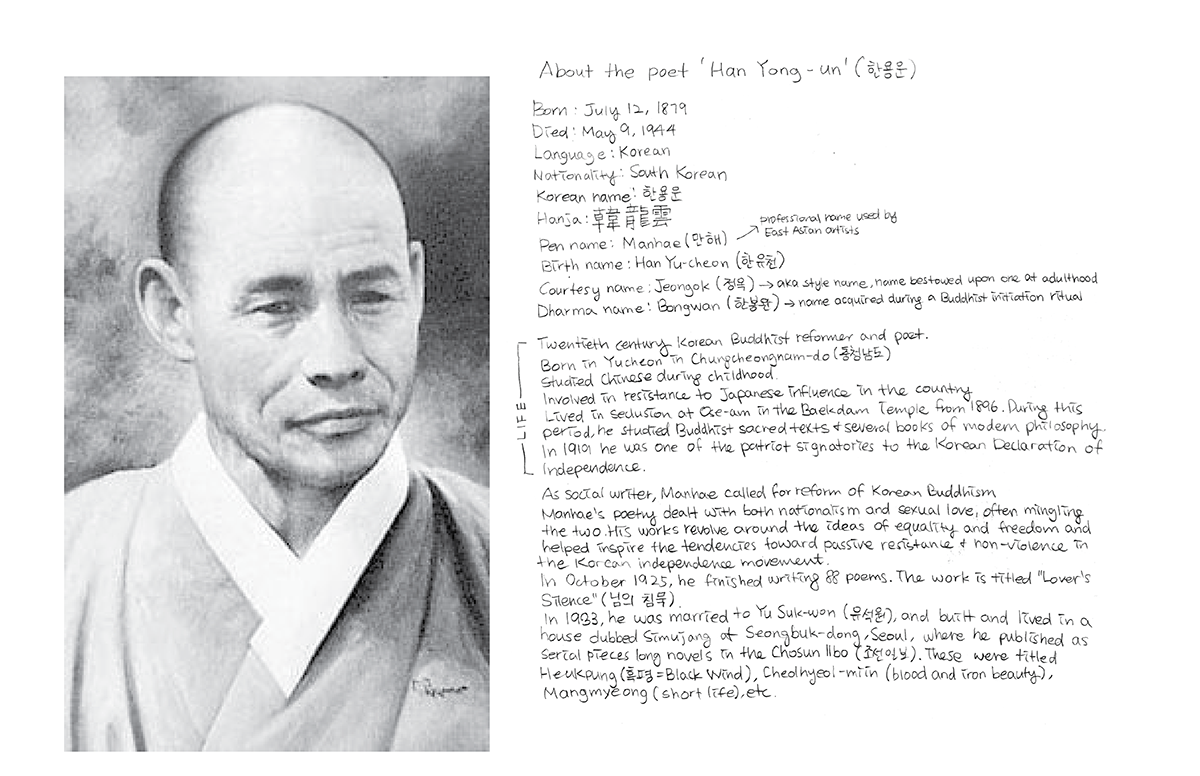 About the poet 'Han Yong-un' (한용운)
Born: July 12, 1879
Died: May 9, 1944
Language: Korean
Nationality: South Korean
Korean name: 한용운
Hanja: 韓龍雲
Pen name: Manhae (만해)
professional name used by
East Asian artists
Birth name: Han Yu-cheon (한유천)
Courtesy name: Jeongok (정옥) → aka style name, name bestowed upon one at adulthood
Dharma name: Bongwan (한봉완) → name acquired during a Buddhist initiation ritual
LIFE
Twentieth century Korean Buddhist reformer and poet.
Born in Yucheon in Chungcheongnam-do (충청남도)
Studied Chinese during childhood.
Involved in resistance to Japanese influence in the country
Lived in seclusion at Ose-am in the Baekdam Temple from 1896. During this
period, he studied Buddhist sacred texts & several books of modern philosophy.
In 1919 he was one of the patriot signatories to the Korean Declaration of
Independence.
As social writer, Manhae called for reform of Korean Buddhism
Manhae's poetry dealt with both nationalism and sexual love, often mingling
the two. His works revolve around the ideas of equality and freedom and
helped inspire the tendencies toward passive resistance & non-violence in
the Korean independence movement.
In October 1925, he finished writing 88 poems. The work is titled "Lover's
Silence" (님의 침묵).
In 1933, he was married to Yu Suk-won (유석원), and built and lived in a
house dubbed Simujang at Seongbuk-dong, Seoul, where he published as
serial pieces long novels in the Chosun Ilbo (조선일보). These were titled
Heukpung (흑풍=Black Wind), Cheolhyeol-miin (blood and iron beauty),
Mangmyeong (short life), etc.